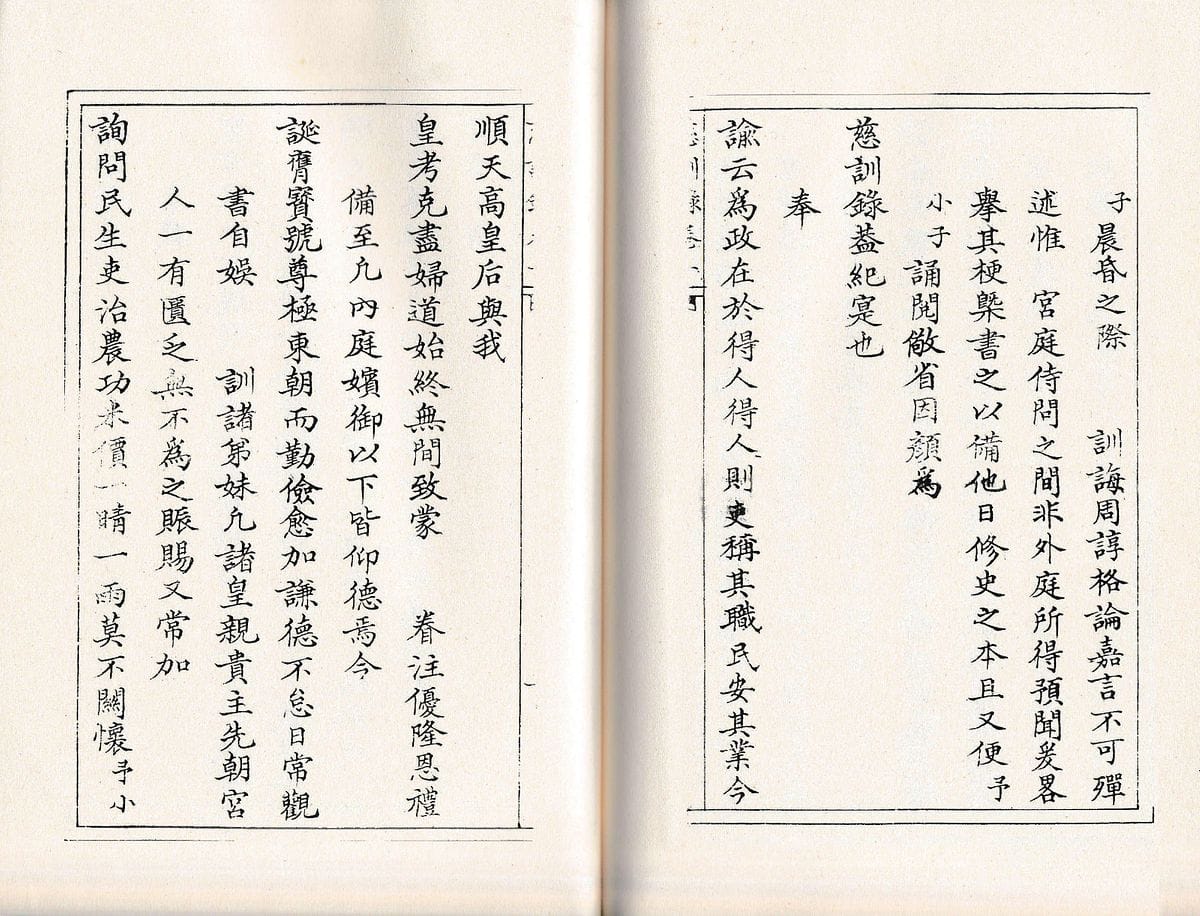 順天高皇后與我
皇考克盡婦道始終無間致蒙　眷注優隆恩禮
備至凢內庭嬪御以下皆仰德焉今
誕膺寳號尊極東朝而勤儉愈加謙德不怠日常觀
書自娛　訓諸弟妹凢諸皇親貴主先朝宮
人一有匱乏無不為之賑賜又常加
詢問民生吏治農功米價一晴一雨莫不關懷予小
子晨昏之際　訓誨周諄格論嘉言不可殫
述惟　宮庭侍問之間非外庭所得預聞爰畧
舉其梗槩書之以備他日修史之本且又便予
小子誦閱儆省因顏為
慈訓錄葢紀寔也
奉
諭云為政在於得人得人則吏稱其職民安其業今